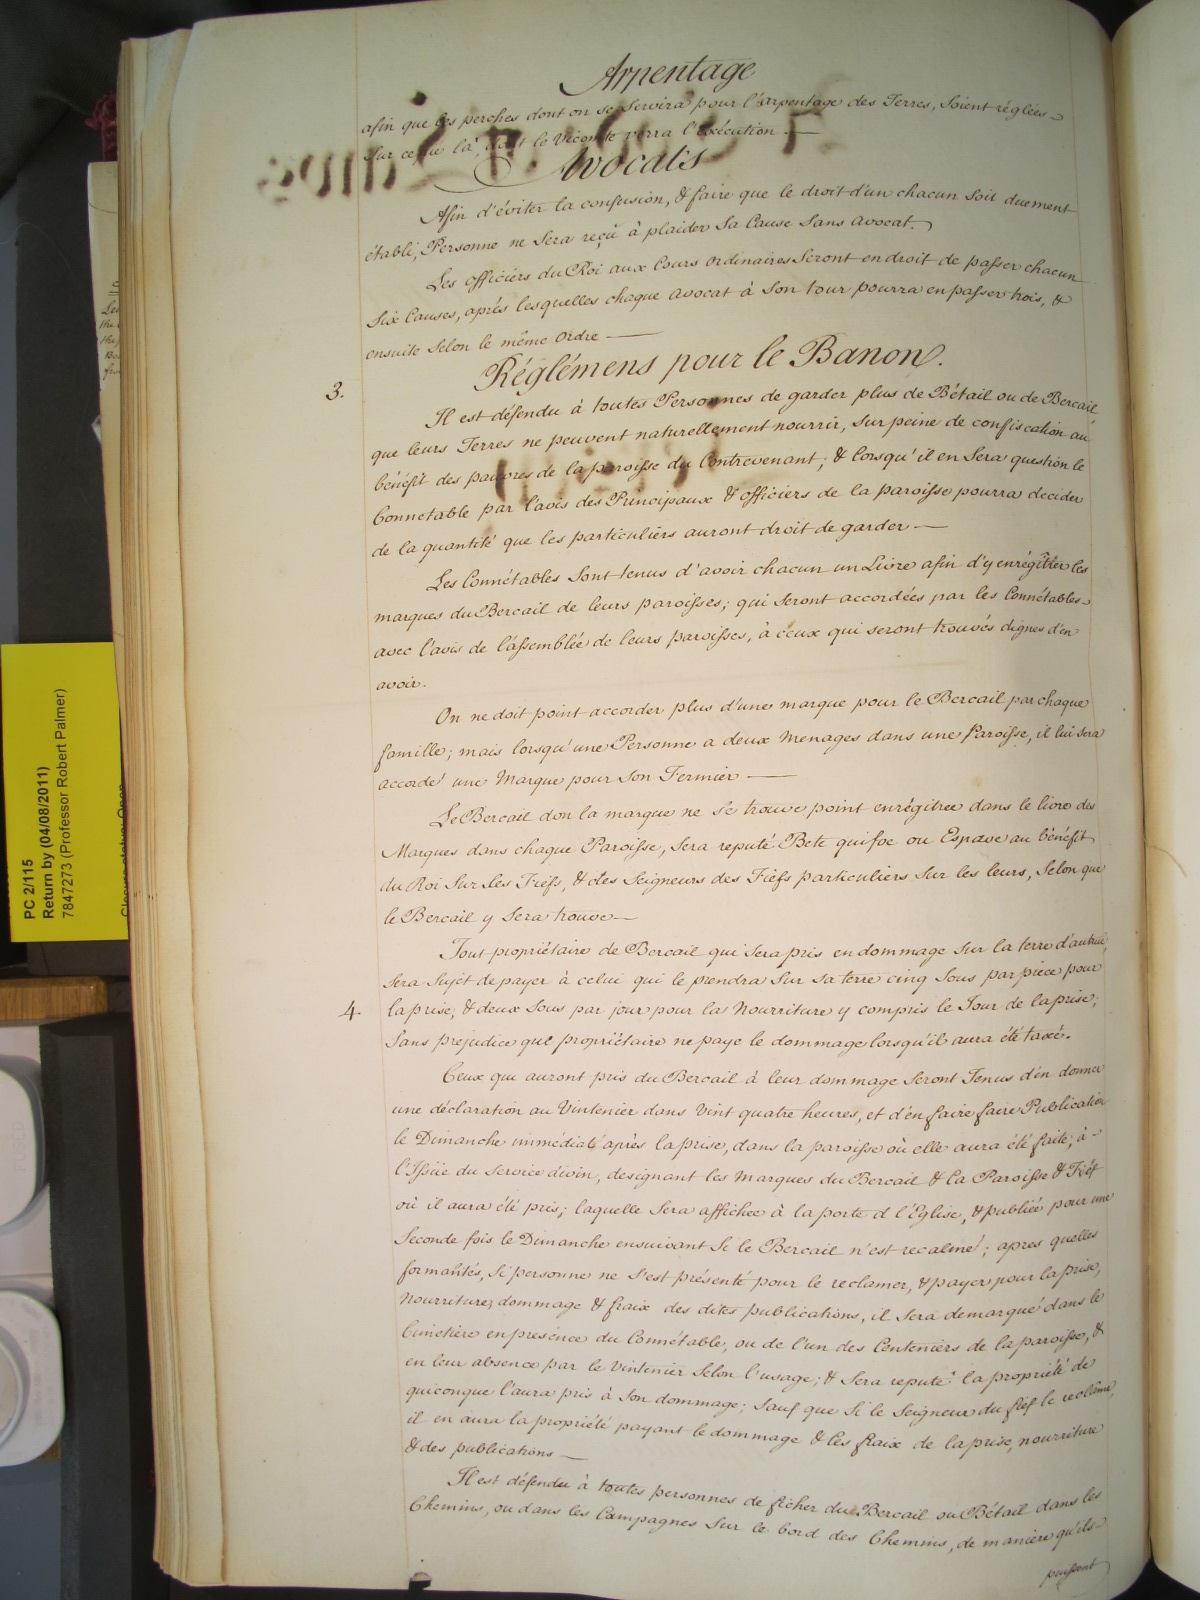 Arpentage
afin que les perches dont on se Servira pour l'arpentage des Terres, Soient réglées
Sur celle là, dont le Vicomte verra l'Exécution.
Avocats
Afin d'éviter la confusion, & faire que le droit d'un chacun Soit duement
établi, Personne ne Sera reçû à plaider Sa Cause Sans avocat.
Les officiers du Roi aux Cours ordinaires Seront en droit de passer chacun
Six Causes, aprés lesquelles chaque avocat à Son tour pourra en passer trois, &
ensuite Selon le même Ordre
Réglémens pour le Banon.
3.
Il est défendu à toutes Personnes de garder plus de Bétail ou de Bercail
que leurs Terres ne peuvent naturellement nourrir, Sur peine de confiscation au
bénéfit des pauvres de la paroisse du Contrevenant; & lorsqu'il en Sera question le
Connetable par l'avis des Principaux & officiers de la paroisse pourra decider
de la quantité que les particuliers auront droit de garder
Les Connétables Sont tenus d'avoir chacun un Livre afin d'y enrégîtrer les
marques du Bercail de leurs paroisses; qui Seront accordées par les Connétables
avec l'avis de l'assemblée de leurs paroisses, à ceux qui seront trouvés dignes d'en
avoir.
On ne doit point accorder plus d'une marque pour le Bercail par chaque
famille; mais lorsqu'une Personne a deux Menages dans une Paroisse, il lui sera
accordé une Marque pour Son Fermier
Le Bercail don la marque ne se trouve point enrégitree dans le livre des
Marques dans chaque Paroisse, Sera reputé Bete quifoc ou Espave au bénéfit
du Roi Sur Ses Fiéfs, & des Seigneurs des Fiéfs particuliers Sur les leurs, Selon que
le Bercail y Sera trouve
Tout propriétaire de Bercail qui Sera pris en dommage Sur la terre d'autrui,
Sera Sujét de payer à celui qui le prendra Sur Sa terre cinq Sous par piéce pour
4.
la prise; & deux Sous par jour pour la Nourriture y compris le Jour de la prise;
Sans prejudice que propriétaire ne paye le dommage lorsqu'il aura été taxé.
Ceux qui auront pris du Bercail à leur dommage Seront Tenus d'en donner
une déclaration au Vintenier dans Vint quatre heures, et d'en faire faire Publication
le Dimanche immédiat après la prise, dans la paroisse où elle aura été faite; à
l'Issüe du Service divin, designant les Marques du Bercail & la Paroisse & Fiéf
où il aura été pris; laquelle Sera affichee à la porte d l'Eglise, & publiée pour une
Seconde fois le Dimanche ensuivant Si le Bercail n'est recalmé; apres quelles
formalités, Si personne ne S'est présenté pour le reclamer, & payer pour la prise,
Nourriture, dommage & fraix des dites publications, il Sera demarqué dans le
Cimetiére en presénce du Connétable, ou de l'un des Centeniers de la paroisse, &
en leur absence par le Vintenier Selon l'usage; & Sera reputé la propriété de
quiconque l'aura pris à Son dommage; Sauf que Si le Seigneur du fief le reclâme,
il en aura la propriété payant le dommage & les fraix de la prise, nourriture
& des publications
Il est défendu à toutes personnes de ficher du Bercail ou Bétail dans les
Chemins, ou dans les Campagnes Sur le bord des Chemins, de maniére qu'ils
puissent
PC 2/115
Return by (04/08/2011)
7847273 (Professor Robert Palmer)